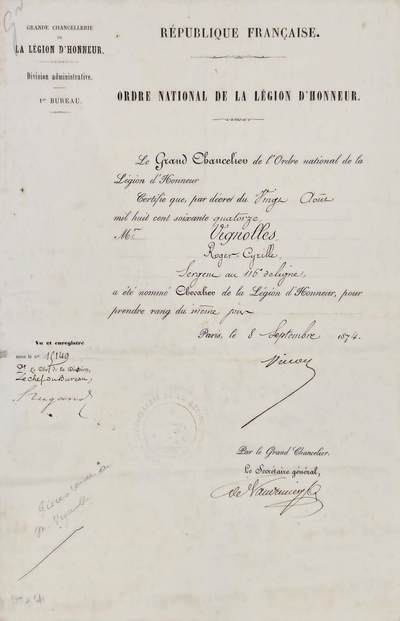 GRANDE CHANCELLERIE
DE
LA LÉGION D'HONNEUR.
Division administrative.
1er BUREAU.
RÉPUBLIQUE FRANÇAISE.
ORDRE NATIONAL DE LA LÉGION D'HONNEUR.
Le Grand Chancelier de l'Ordre national de la
Légion d'Honneur
Certifie que, par décret du Vingt Août
mil huit cent soixante quatorze
Mr Vignolles,
Roger-Cyrille
Sergent au 116e de ligne,
a été nommé Chevalier de la Légion d'Honneur, pour
prendre rang du même jour
Paris, le 8 Septembre 1874.
Vinoy
Vu et enregistré
sous le no 15149
Le Chef de la Division,
Le chef du Bureau,
Par le Grand Chancelier.
Le Secrétaire général,
de Vaudrimey